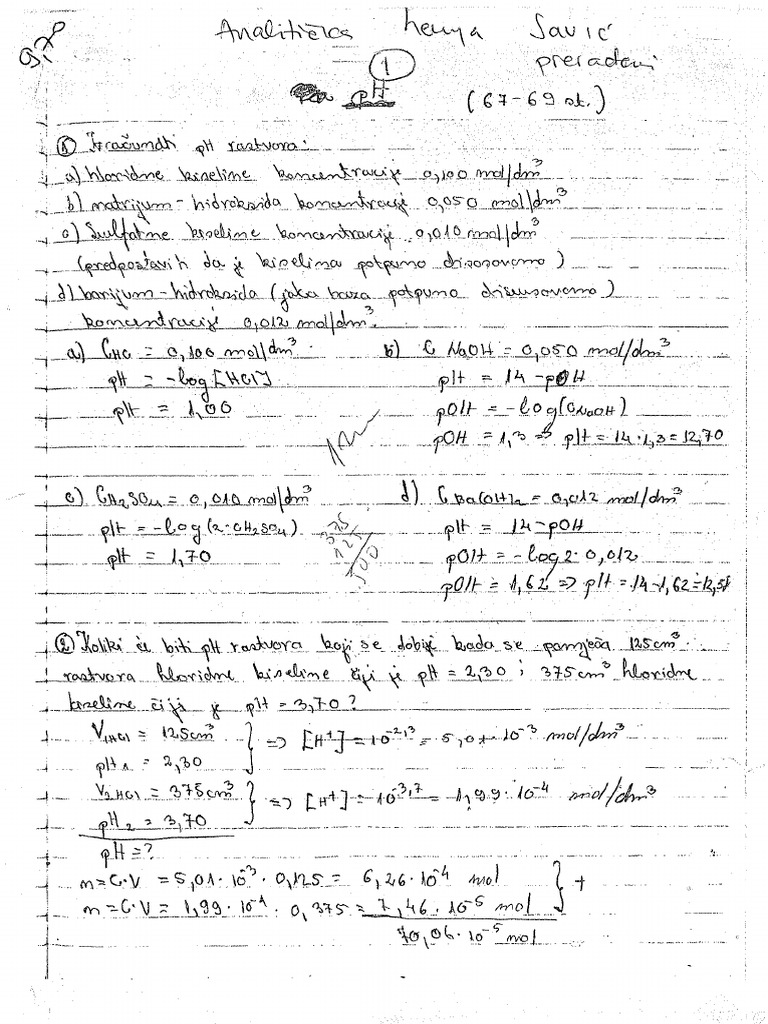 9,70
Analitička hemija Savić
preradeni
1
pH
(67-69 st.)
① Izračunati pH rastvora:
a) hloridne kiseline koncentracije 0,100 mol/dm³
b) natrijum-hidroksida koncentracije 0,050 mol/dm³
c) Sulfatne kiseline koncentracije 0,010 mol/dm³
(predpostaviti da je kiselina potpuno disosovana)
d) barijum-hidroksida (jaka baza potpuno disosovana)
koncentracije 0,012 mol/dm³.
a) CHCl = 0,100 mol/dm³
pH = -log[HCl]
pH = 1,00
b) C NaOH = 0,050 mol/dm³
pH = 14 - pOH
pOH = -log(CNaOH)
pOH = 1,3 => pH = 14-1,3 = 12,70
c) CH2SO4 = 0,010 mol/dm³
pH = -log(2·CH2SO4)
pH = 1,70
375
125
500
d) C Ba(OH)2 = 0,012 mol/dm³
pH = 14-pOH
pOH = -log 2·0,012
pOH = 1,62 => pH = 14-1,62 = 12,38
② Koliki će biti pH rastvora koji se dobije kada se pomiješa 125cm³
rastvora hloridne kiseline čiji je pH = 2,30 i 375cm³ hloridne
kiseline čiji je pH = 3,70?
V1HCl = 125cm³
pH1 = 2,30
=> [H⁺] = 10^-2,3 = 5,01·10^-3 mol/dm³
V2HCl = 375cm³
pH2 = 3,70
=> [H⁺] = 10^-3,7 = 1,99·10^-4 mol/dm³
pH = ?
n=C·V = 5,01·10^-3 · 0,125 = 6,26·10^-4 mol
n=C·V = 1,99·10^-4 · 0,375 = 7,46·10^-5 mol
+
70,06·10^-5 mol